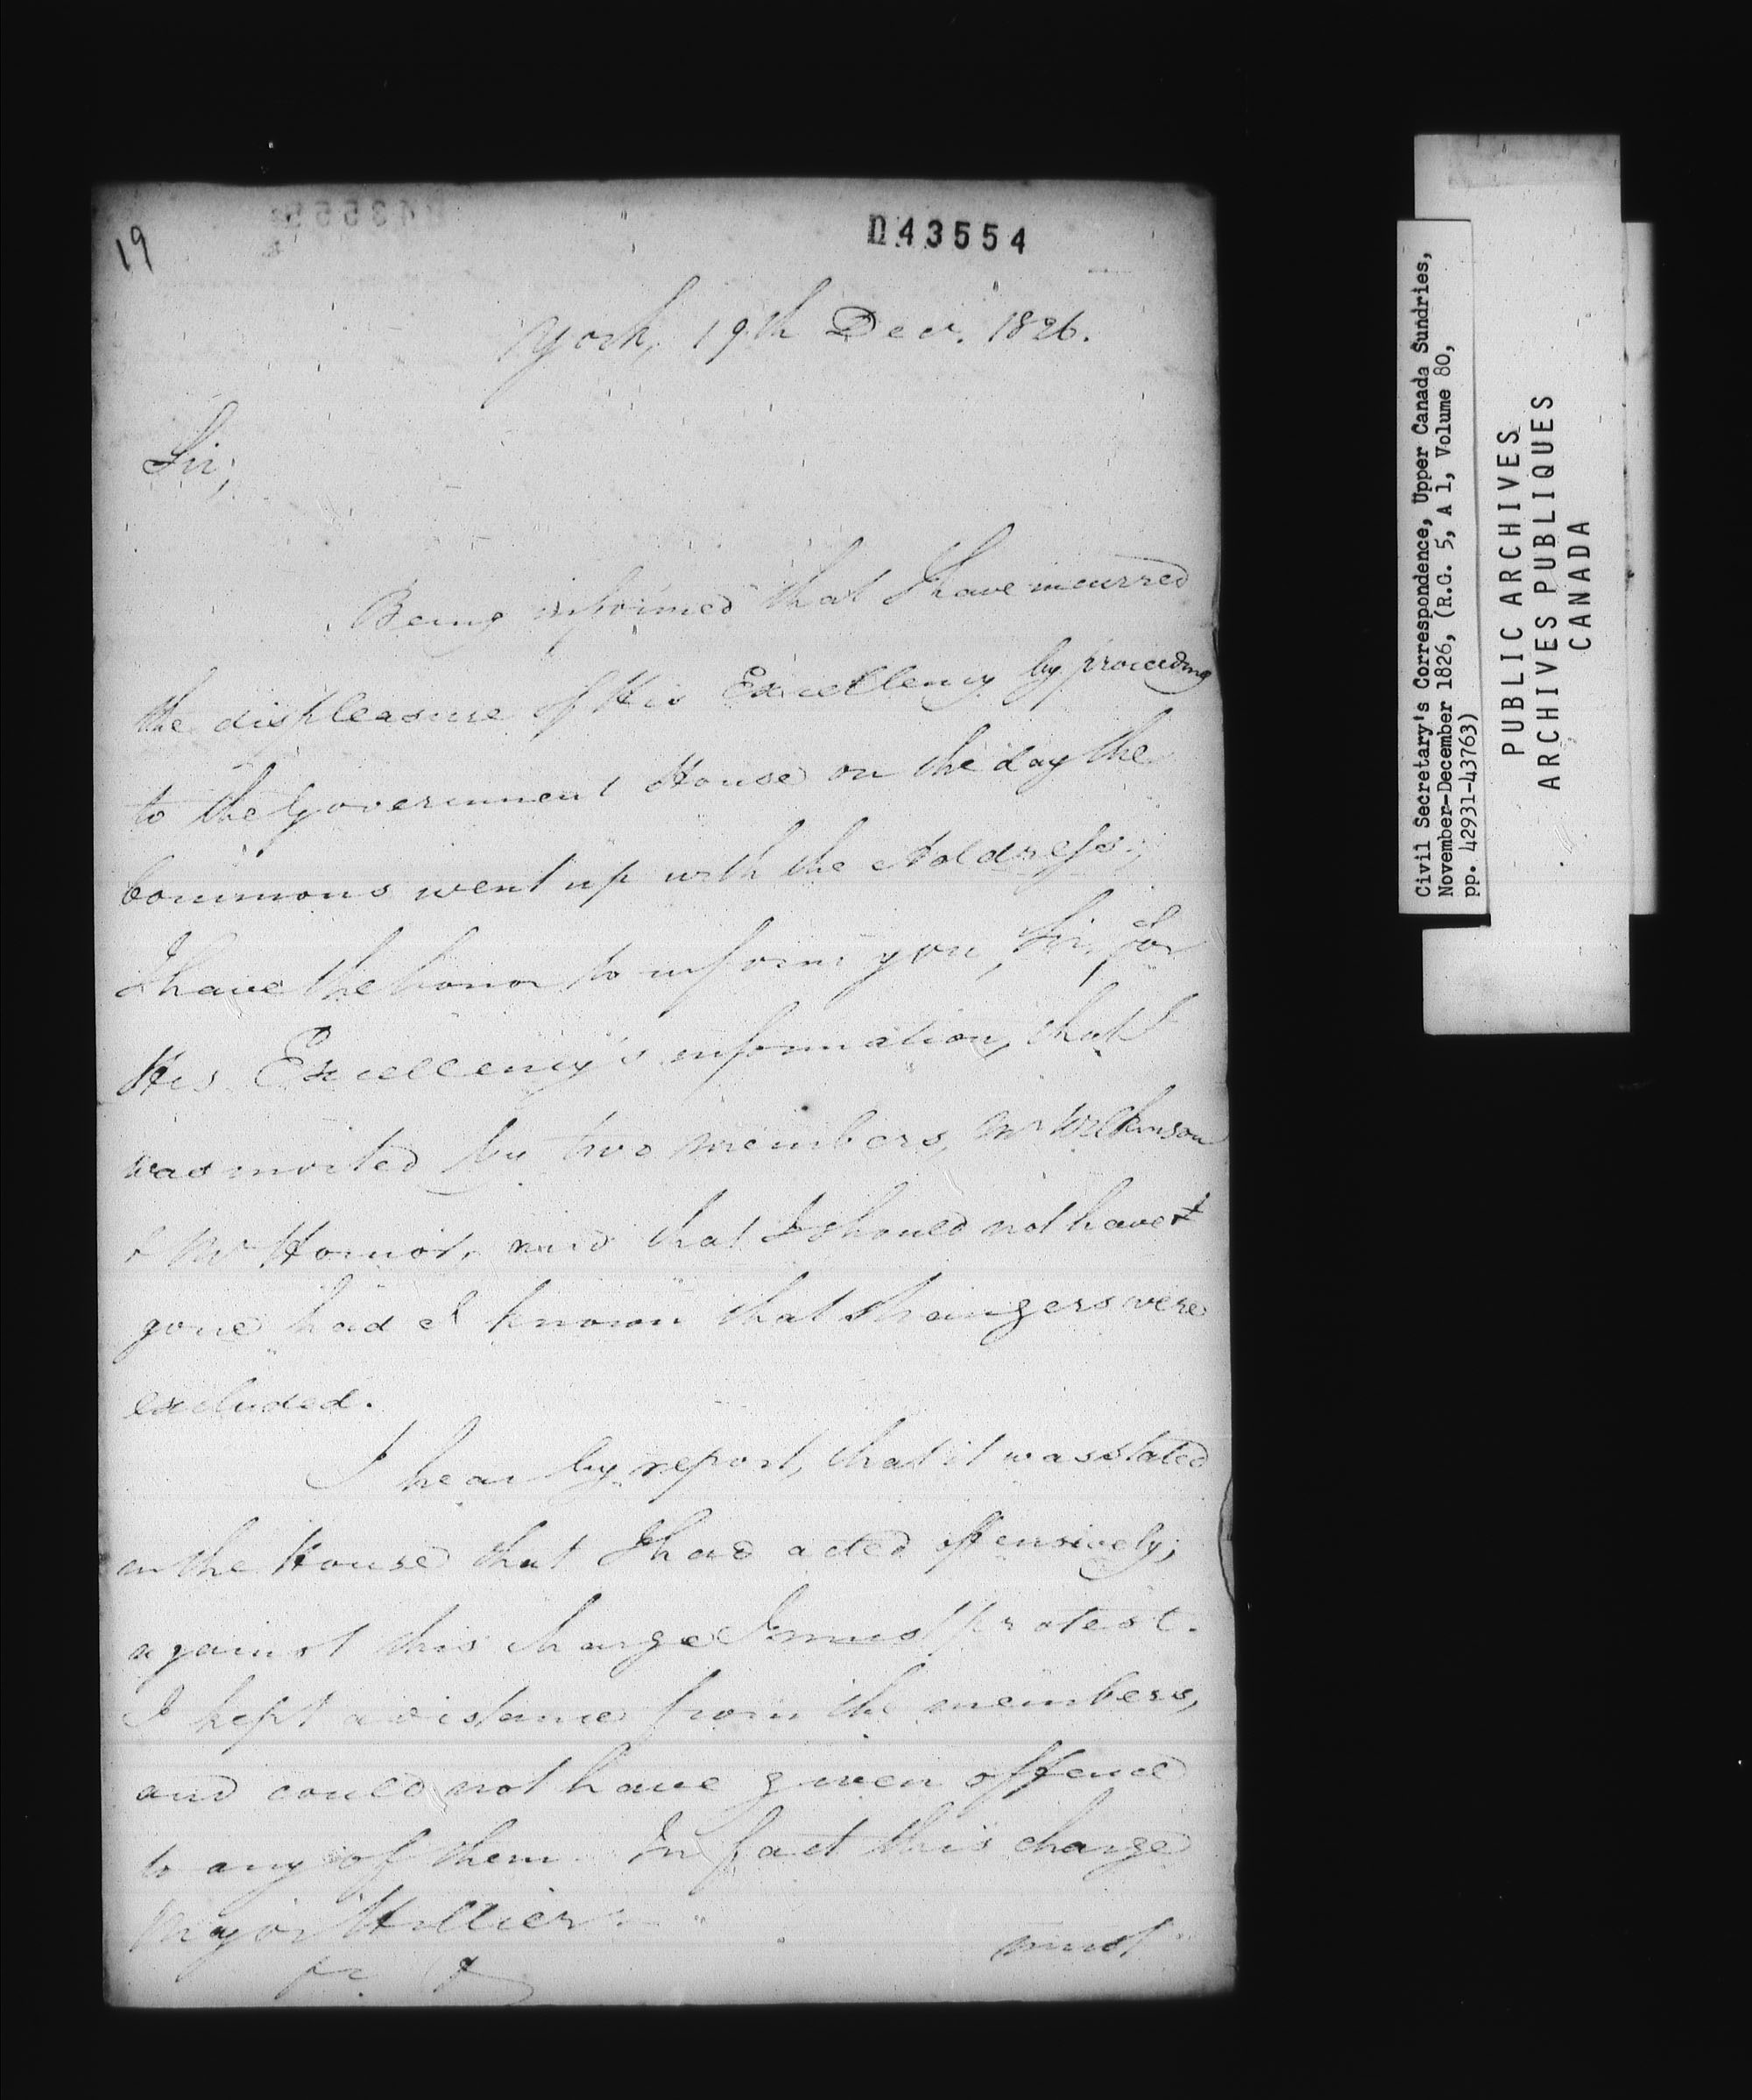 19
043554
York, 19th Decr. 1826.
Sir;
Being informed that I have incurred
the displeasure of His Excellency by proceeding
to the Government House on the day the
Commons went up with the Address;
I have the honor to inform you, Sir, for
His Excellency's information, that I
was invited by two members, Mr Wilkinson
& Mr Hornor, and that I should not have
gone had I known that strangers were
excluded.
I hear by report, that it was stated
in the House that I had acted offensively;
against this charge I must protest.
I kept a distance from the members,
and could not have given offence
to any of them. In fact this charge
Major Hillier
&c. &c.
must
Civil Secretary's Correspondence, Upper Canada Sundries,
November-December 1826, (R.G. 5, A 1, Volume 80,
pp. 42931-43763)
PUBLIC ARCHIVES
ARCHIVES PUBLIQUES
CANADA